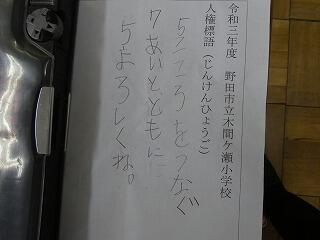 令和三年度　野田市立木間ケ瀬小学校
人権標語（じんけんひょうご）
5 こころをつなぐ
7 あいとともに
5 よろしくね。